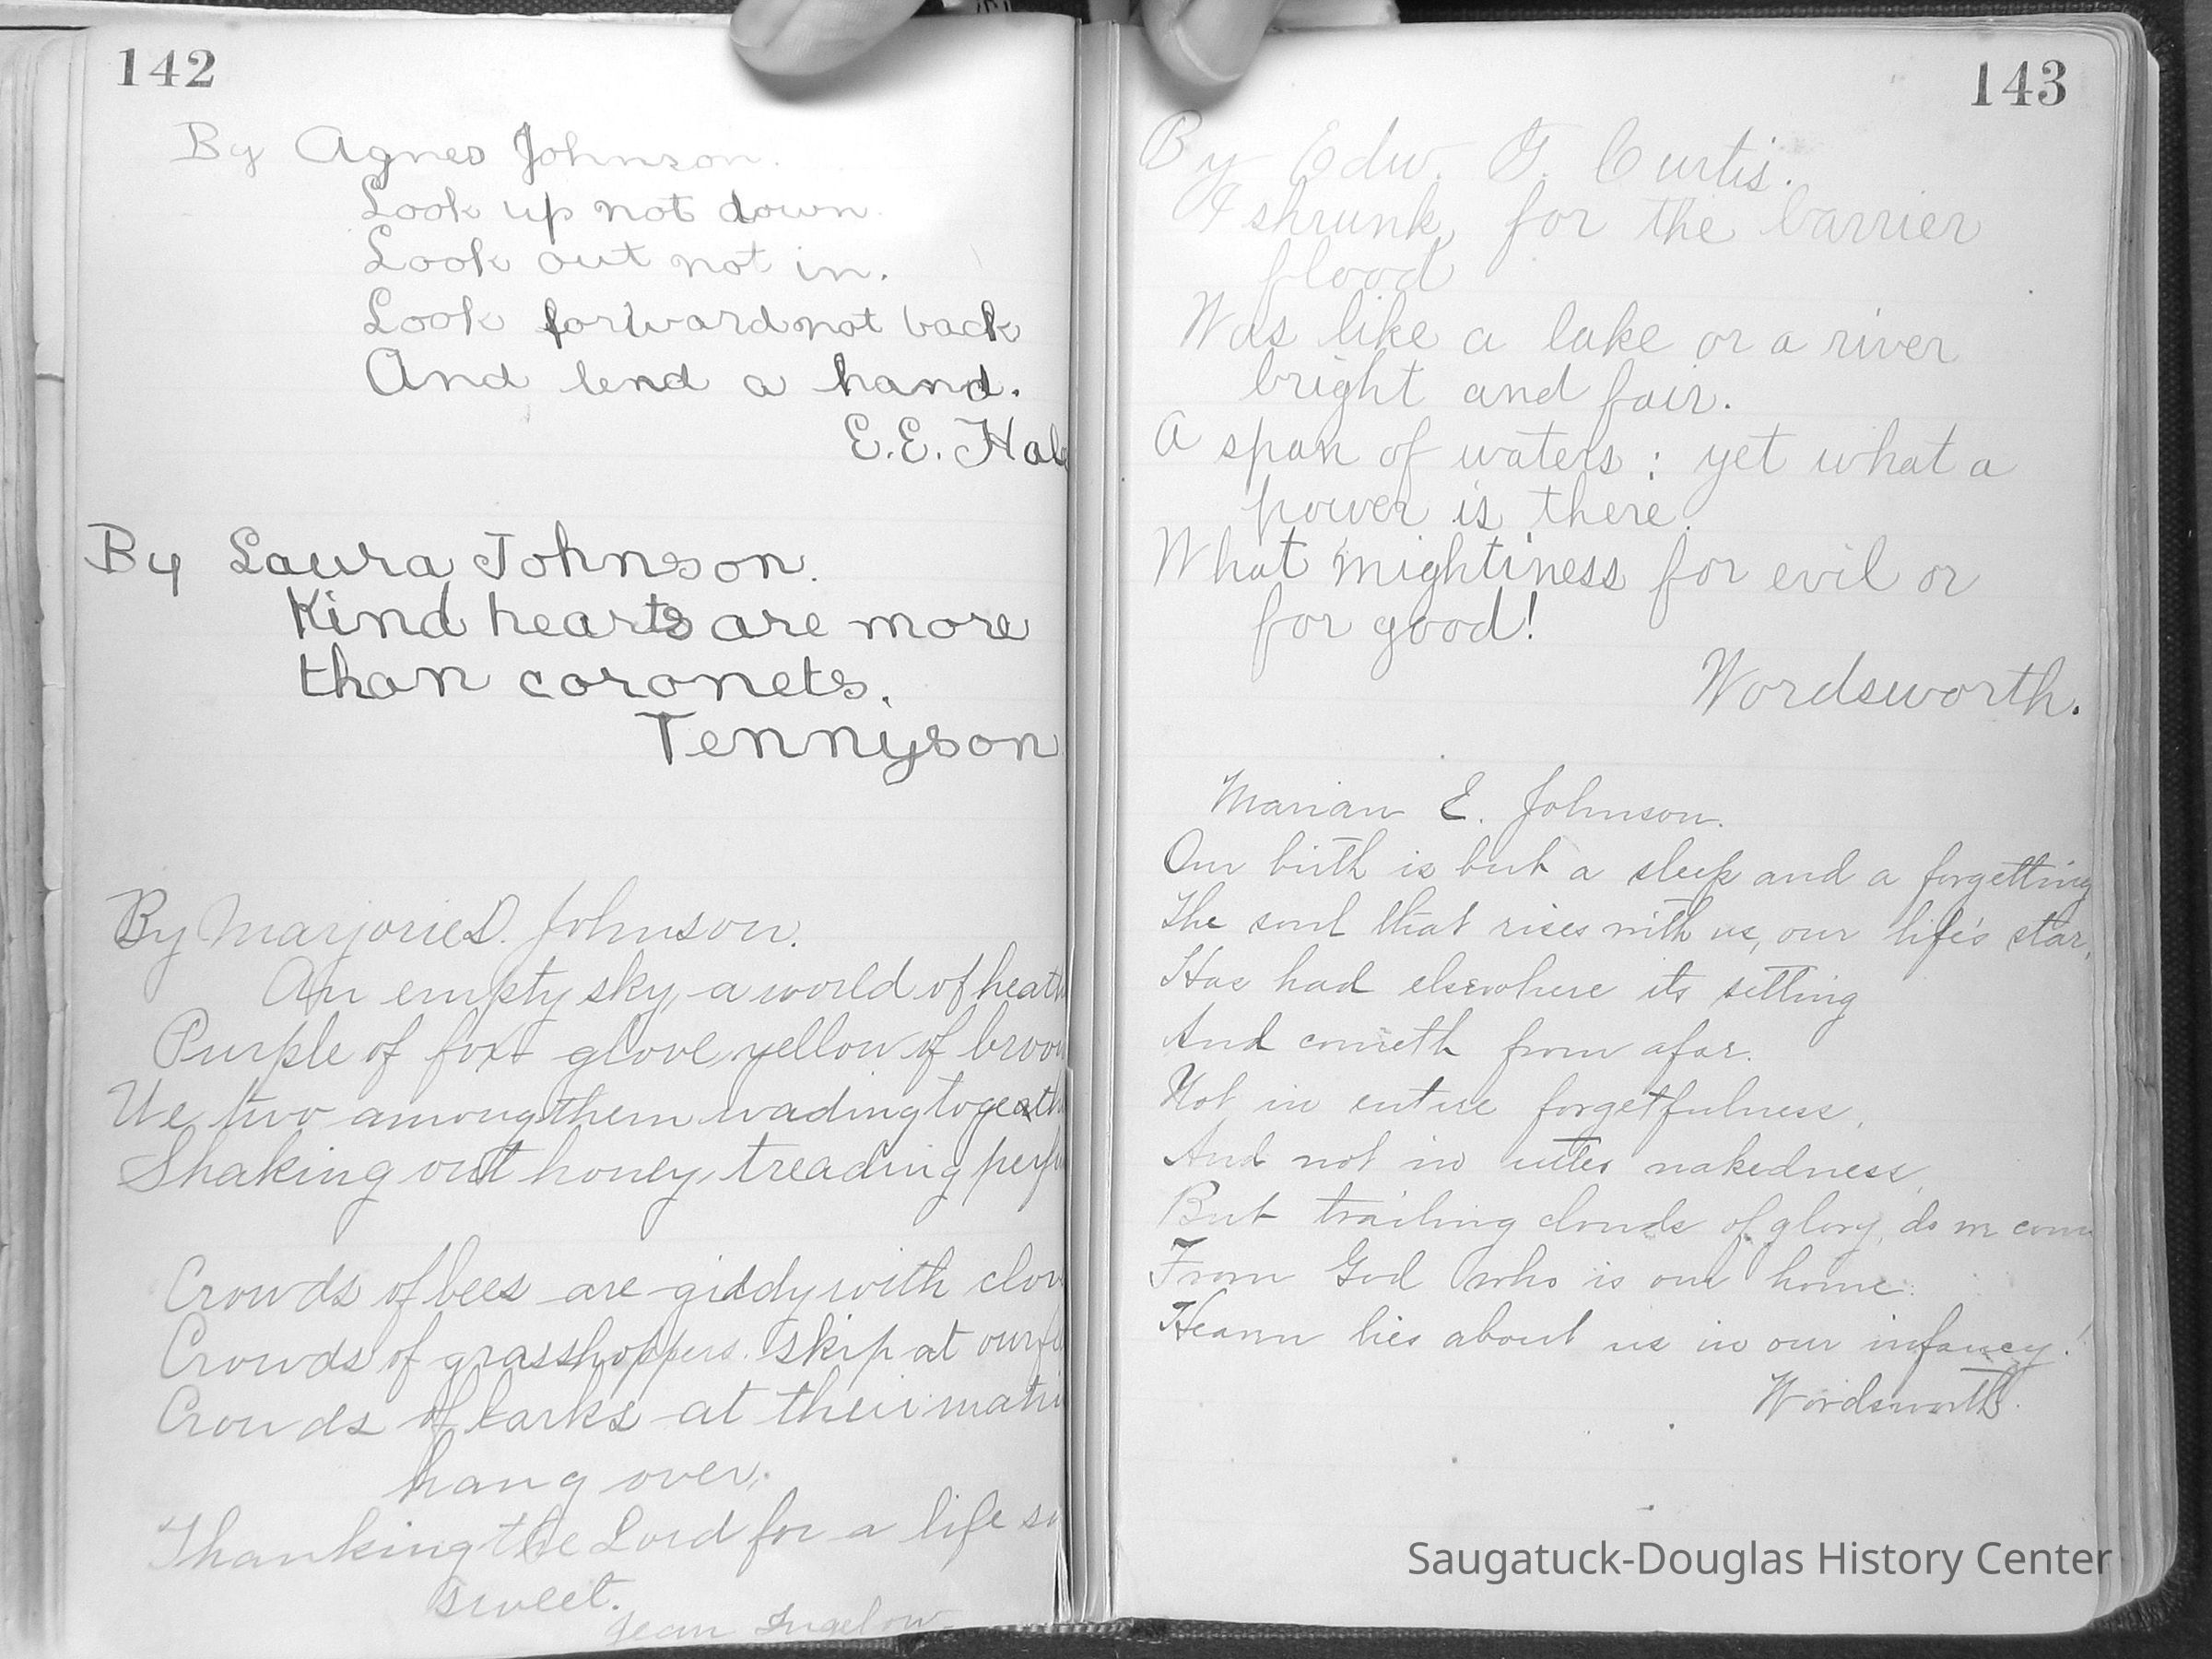 142
By Agnes Johnson.
Look up not down
Look out not in.
Look forward not back
And lend a hand.
E.E. Hale
By Laura Johnson.
Kind hearts are more
than coronets.
Tennyson
By Marjorie D. Johnson.
An empty sky, a world of heath
Purple of fox glove yellow of broom
We two among them wading togeath
Shaking out honey, treading perfu
Crowds of bees are giddy with clov
Crowds of grasshoppers skip at our fe
Crowds of larks at their matin
hang over,
Thanking the Lord for a life so
sweet.
Jean Ingelow
143
By Edw. G. Curtis.
I shrunk, for the barrier
flood
Was like a lake or a river
bright and fair.
A span of waters; yet what a
power is there.
What mightiness for evil or
for good!
Wordsworth.
Marian E. Johnson.
Our birth is but a sleep and a forgetting
The soul that rises with us, our life's star,
Has had elsewhere its setting
And cometh from afar.
Not in entire forgetfulness,
And not in utter nakedness,
But trailing clouds of glory, do we come
From God who is our home:
Heaven lies about us in our infancy!
Wordsworth.
Saugatuck-Douglas History Center